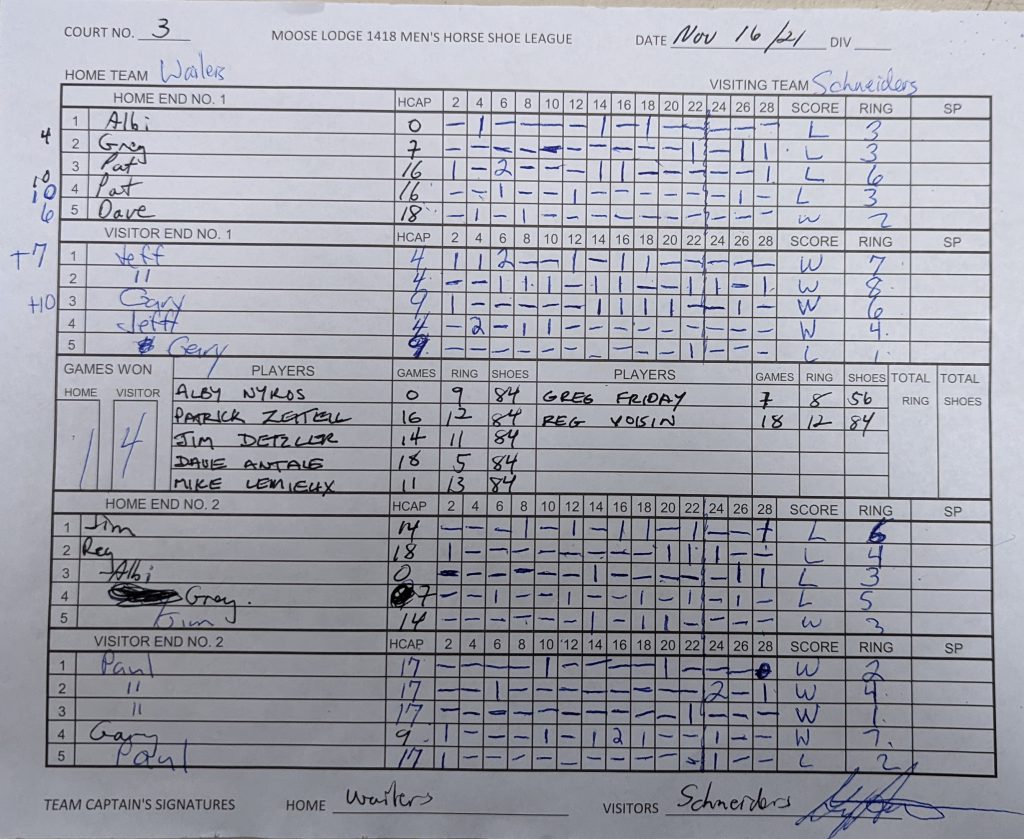 COURT NO. 3 MOOSE LODGE 1418 MEN'S HORSE SHOE LEAGUE DATE Nov 16/21 DIV
HOME TEAM Wailers VISITING TEAM Schneiders
HOME END NO. 1 HCAP 2 4 6 8 10 12 14 16 18 20 22 24 26 28 SCORE RING SP
1 Albi 0 - 1 - - - - 1 - 1 - - - - - L 3
4 2 Greg 7 - - - - - - - - - - 1 - 1 1 L 3
3 Pat 16 1 - 2 - - - 1 1 - - - - - 1 L 6
10 10 4 Pat 16 - - 1 - - 1 - - - - - - 1 - L 3
6 5 Dave 18 - 1 - 1 - - - - - - - - - - W 2
VISITOR END NO. 1 HCAP 2 4 6 8 10 12 14 16 18 20 22 24 26 28 SCORE RING SP
+7 1 Jeff 4 1 1 2 - - 1 - 1 1 - - - - - W 7
2 " 4 - - 1 1 1 - - 1 - - 1 1 - 1 W 8
+10 3 Gary 9 1 - - - - - 1 1 1 1 - - 1 - W 6
4 Jeff 4 - 2 - 1 1 - - - - - - - - - W 4
5 Gary 9 - - - - - - - - - - 1 - - - L 1
GAMES WON PLAYERS GAMES RING SHOES PLAYERS GAMES RING SHOES TOTAL TOTAL
HOME VISITOR RING SHOES
1 4
ALBY NYROS 0 9 84 GREG FRIDAY 7 8 56
PATRICK ZETTELL 16 12 84 REG VOISIN 18 12 84
JIM DETZLER 14 11 84
DAVE ANTALE 18 5 84
MIKE LEMIEUX 11 13 84
HOME END NO. 2 HCAP 2 4 6 8 10 12 14 16 18 20 22 24 26 28 SCORE RING SP
1 Jim 14 - - - 1 - 1 - 1 1 - 1 - - 1 L 6
2 Reg 18 1 - - - - - - - - 1 1 1 - - L 4
3 Albi 0 - - - - - - 1 - - - - - 1 1 L 3
4 Greg. 7 - - 1 - - 1 - 1 - - 1 - 1 - L 5
5 Jim 14 - - - - - - 1 - 1 1 - - - - W 3
VISITOR END NO. 2 HCAP 2 4 6 8 10 12 14 16 18 20 22 24 26 28 SCORE RING SP
1 Paul 17 - - - - 1 - - - - 1 - - - 0 W 2
2 " 17 - - 1 - - - - - - - - 2 - 1 W 4
3 " 17 - - - - - - - - - - 1 - - - W 1
4 Gary 9 1 - - - 1 - 1 2 1 - - 1 - - W 7
5 Paul 17 1 - - - - - - - - - - 1 - - L 2
TEAM CAPTAIN'S SIGNATURES HOME Wailers VISITORS Schneiders